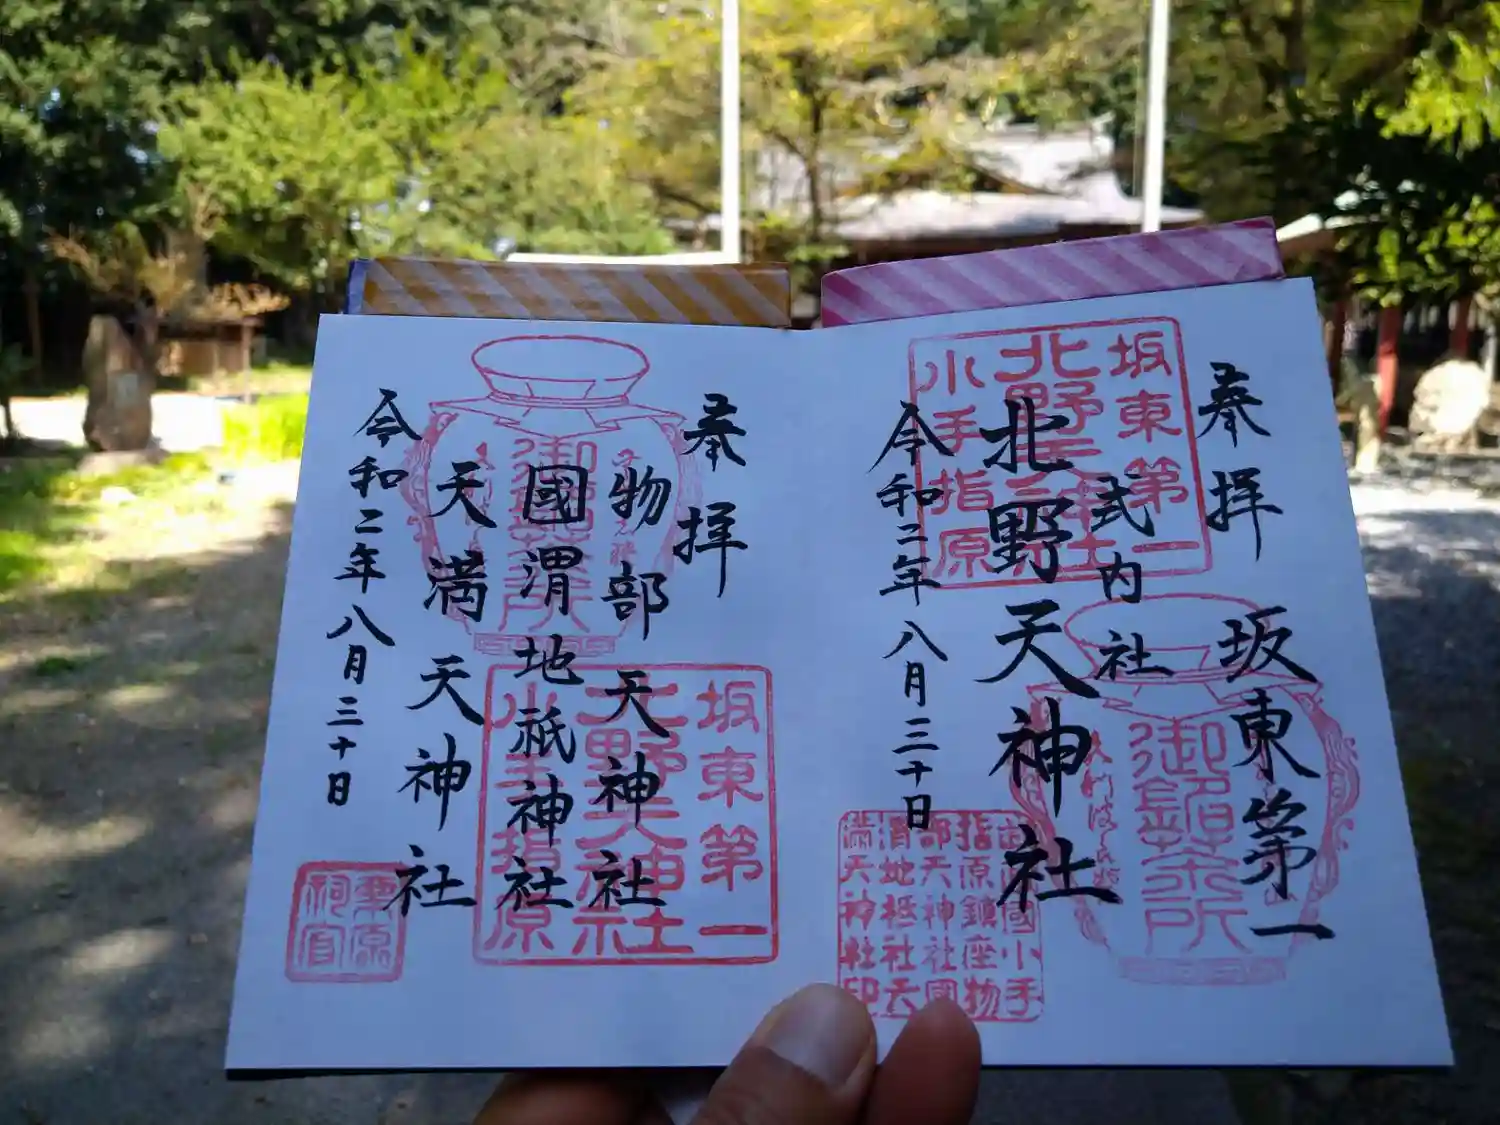 奉拝
坂東第一
式内社
北野天神社
令和二年八月三十日
坂東第一
北野天神社
小手指原
御鎮茶所
武蔵國小手
指原鎮座物
部天神社國
渭地祇社天
満天神社印
奉拝
物部天神社
國渭地祇神社
天満天神社
令和二年八月三十日
坂東第一
北野天神社
小手指原
栗原
祠官